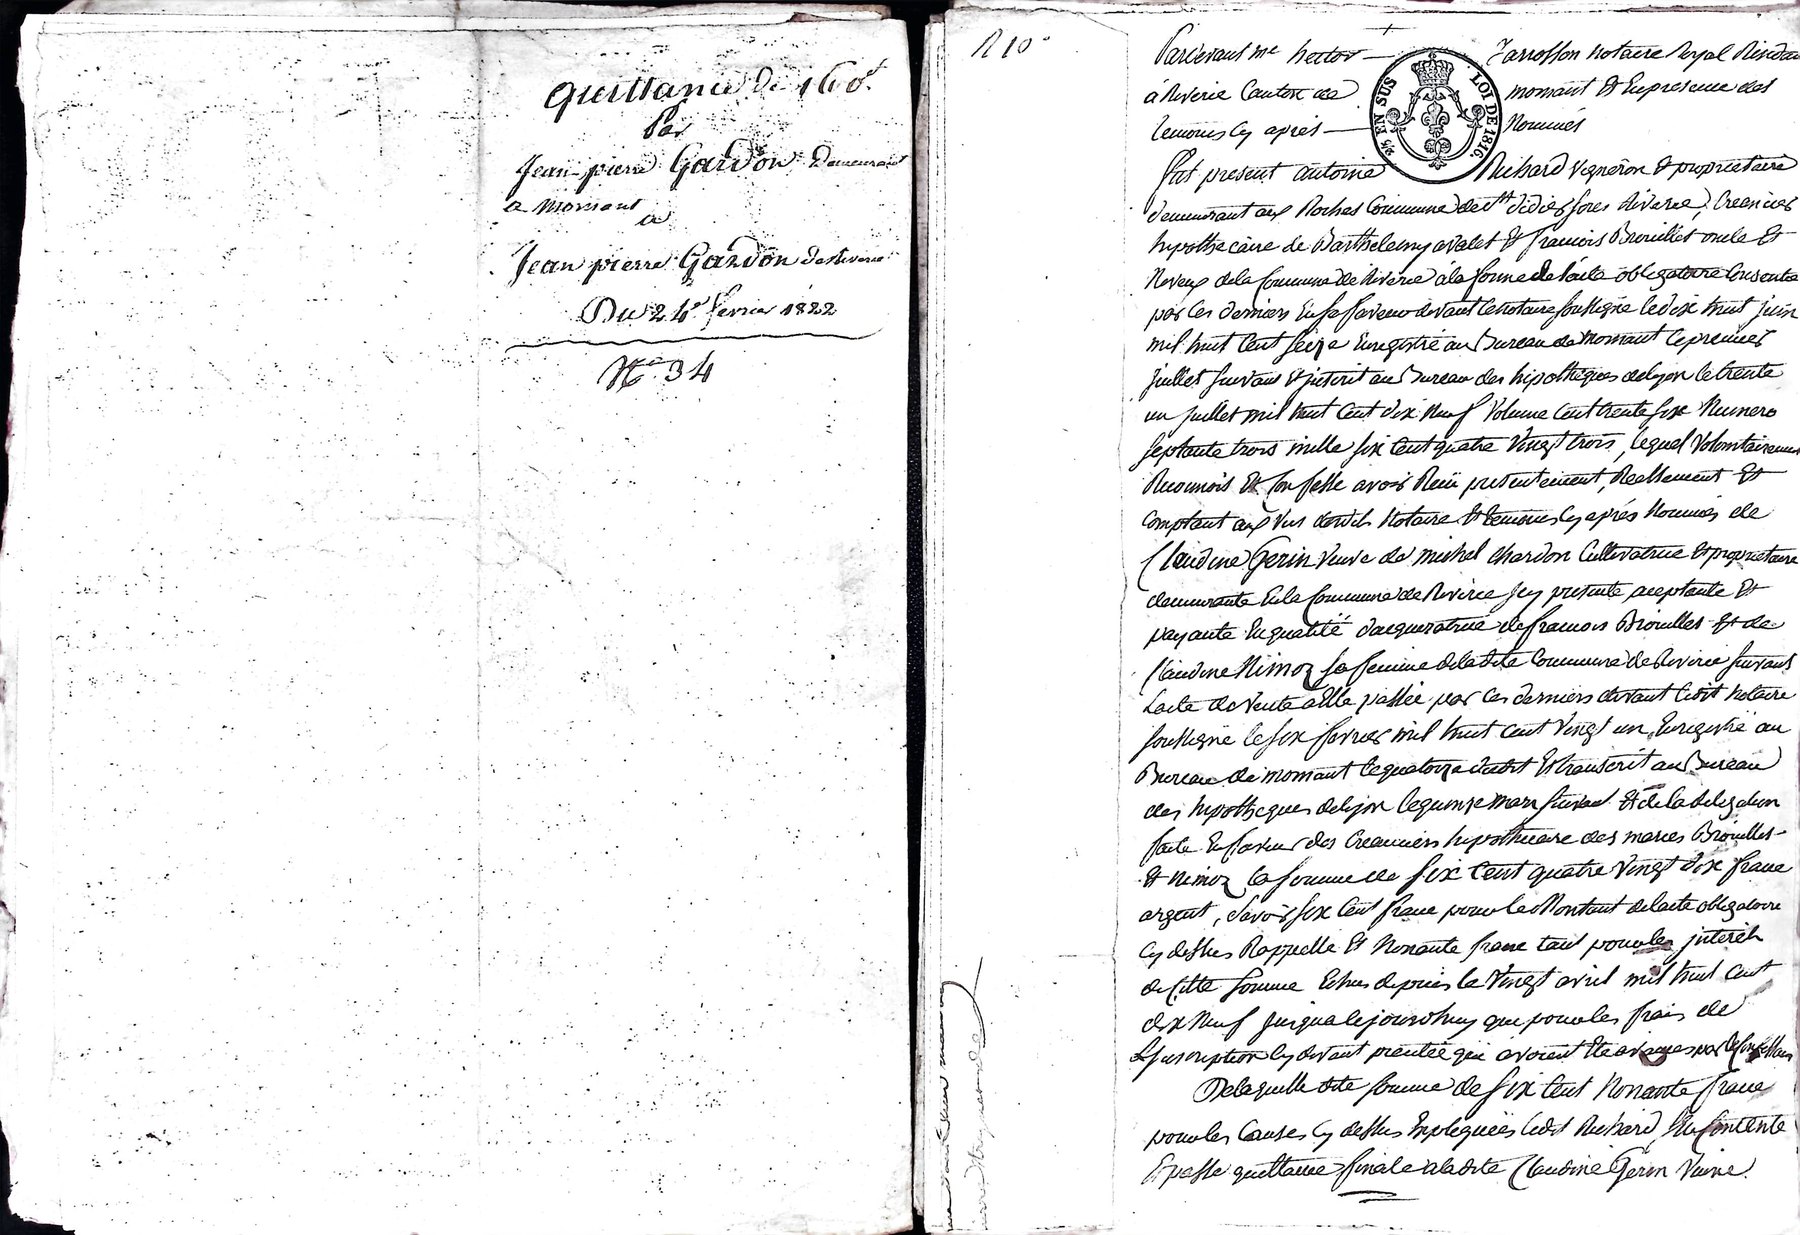 Quittance de 160f
Par
Jean pierre Gardon demeurant
a Mornant
a
Jean pierre Gardon de Riverie
Du 24e fevrier 1822
N° 34
R 10
Pardevant me hector Zarrosson notaire Royal Residant
à Riverie Canton de mornant Et En presence des
temoins Cy après Nommés
EN SUS
LOI DE 1816
fut present antoine Richard vigneron & proprietaire
demeurant aux Roches Commune de st didier sous Riverie, Creancier
hipothecaire de Barthelemy & francois Brouillet oncle Et
Neveux de la Commune de Riverie à la forme de l'acte obligatoire Consentie
par Ces derniers En sa faveur devant le notaire soussigné le dix huit juin
mil huit Cent seize Enregistré au Bureau de mornant le premier
juillet suivant & jnscrit au Bureau des hipotheques de lyon le trente
un juillet mil huit Cent dix Neuf Volume Cent trente six Numero
septante trois mille six Cent quatre Vingt trois, lequel Volontairement
Reconnois Et Confesse avoir Reçu presentement, Reellement Et
Comptant aux Vus desdits Notaire Et temoins Cy après Nommés de
Claudine Gerin Veuve de michel chardon Cultivatrice Et proprietaire
demeurante En la Commune de Riverie jcy presente, aceptante Et
payante En qualité d'acqueratrice de francois Brouillet Et de
Claudine Nimoz sa femme de la dite Commune de Riverie suivant
Lacte de Vente a Elle passée par Ces derniers devant ledit Notaire
soussigné le six fevrier mil huit Cent Vingt un, Enregistré au
Bureau de mornant le quatorze dudit Et transcrit au Bureau
des hipotheques de lyon le quinze mars suivant Et de la delegation
faite En faveur des Creanciers hipothecaire des maries Brouillet
Et Nimoz la somme de six Cent quatre Vingt dix franc
argent, savoir six Cent franc pour le Montant de lacte obligatoire
Cy dessus Rappellé Et Nonante franc tant pour les jnterets
de Cette somme Echus depuis le Vingt avril mil huit Cent
dix Neuf jusqua le jourdhuy que pour les frais de
Linscription Cy devant que avoient Ete avancés par le Confessant
De laquelle dite somme de six Cent Nonante franc
pour les Causes Cy dessus Expliquées ledit Richard, sen Contente
Et passe quittance finale a la dite Claudine Gerin Veuve